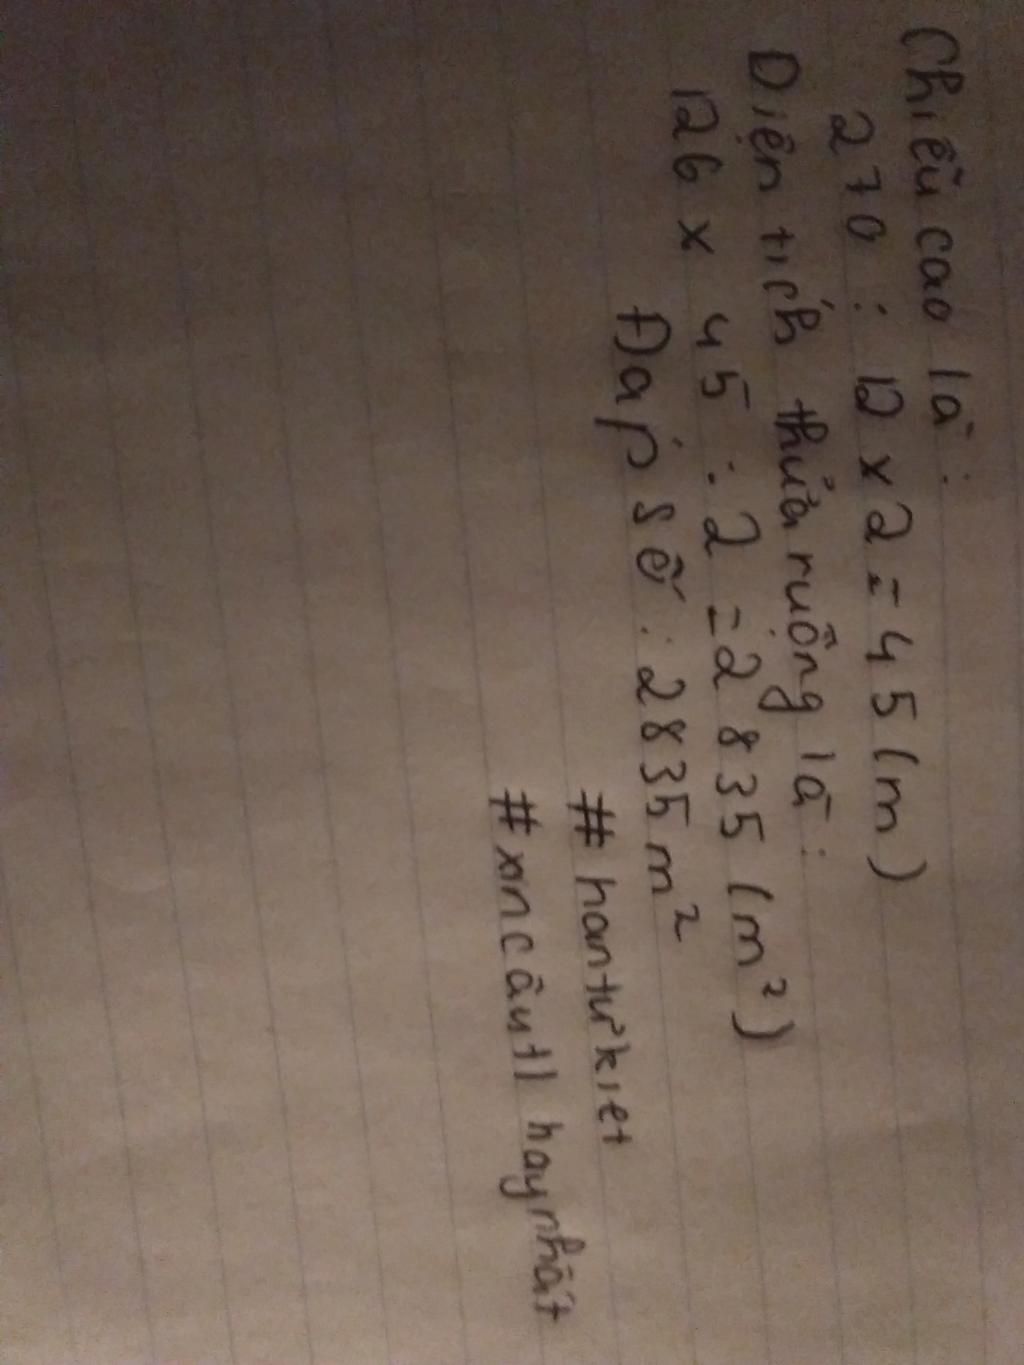 Chiều cao là:
270 : 12 x 2 = 45 (m)
Diện tích thửa ruộng là:
126 x 45 : 2 = 2835 (m²)
Đáp số: 2835 m²
#hantưkiet
#xincâutl haynhất